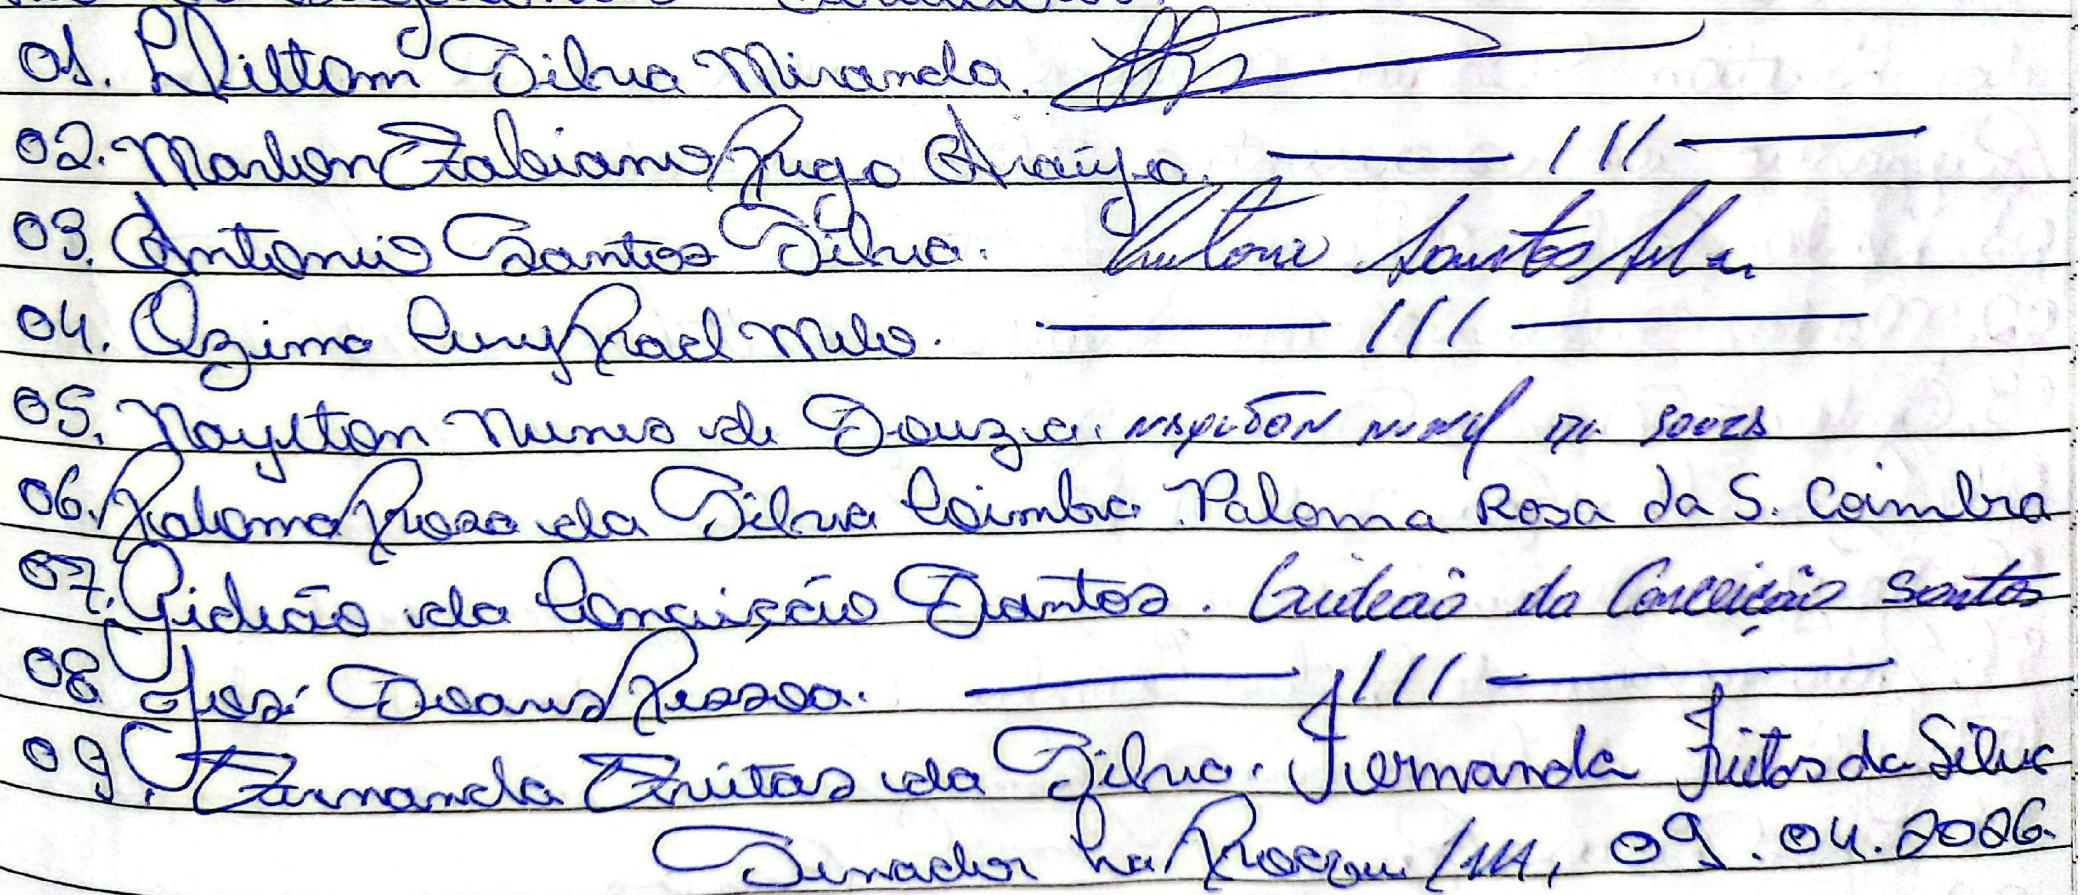 01. Wiltom Silva Miranda.
02. Marlon Fabiano Rugo Araújo. ——— /// ———
03. Antonio Santos Silva. Antonio Santos Silva
04. Ozimo Cury Rael Melo. ——— /// ———
05. Naylton Nunes de Souza. NAYLTON NUNES DE SOUZA
06. Paloma Rosa da Silva Coimbra. Paloma Rosa da S. Coimbra
07. Gideão da Conceição Santos. Gideão da Conceição Santos
08 José Soares Pessoa. ——— /// ———
09. Fernanda Freitas da Silva. Fernanda Freitas da Silva
Senador La Rocque/MA, 09.04.2026.